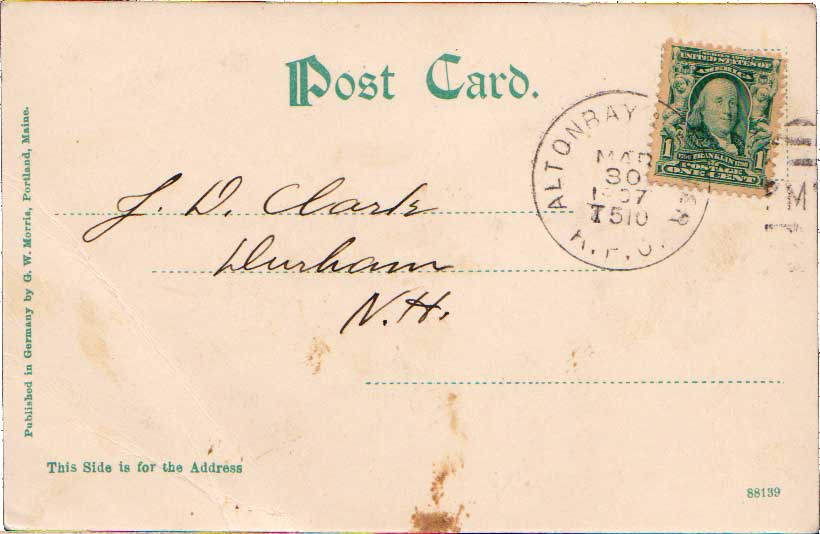 Post Card.
SERIES 1902
UNITED STATES OF
AMERICA
1 1706 FRANKLIN 1790 1
POSTAGE
ONE CENT
ALTONBAY
MAR
30
1907
T 510
R.P.O.
M
J. D. Clark
Durham
N.H.
Published in Germany by G. W. Morris, Portland, Maine.
This Side is for the Address
88139